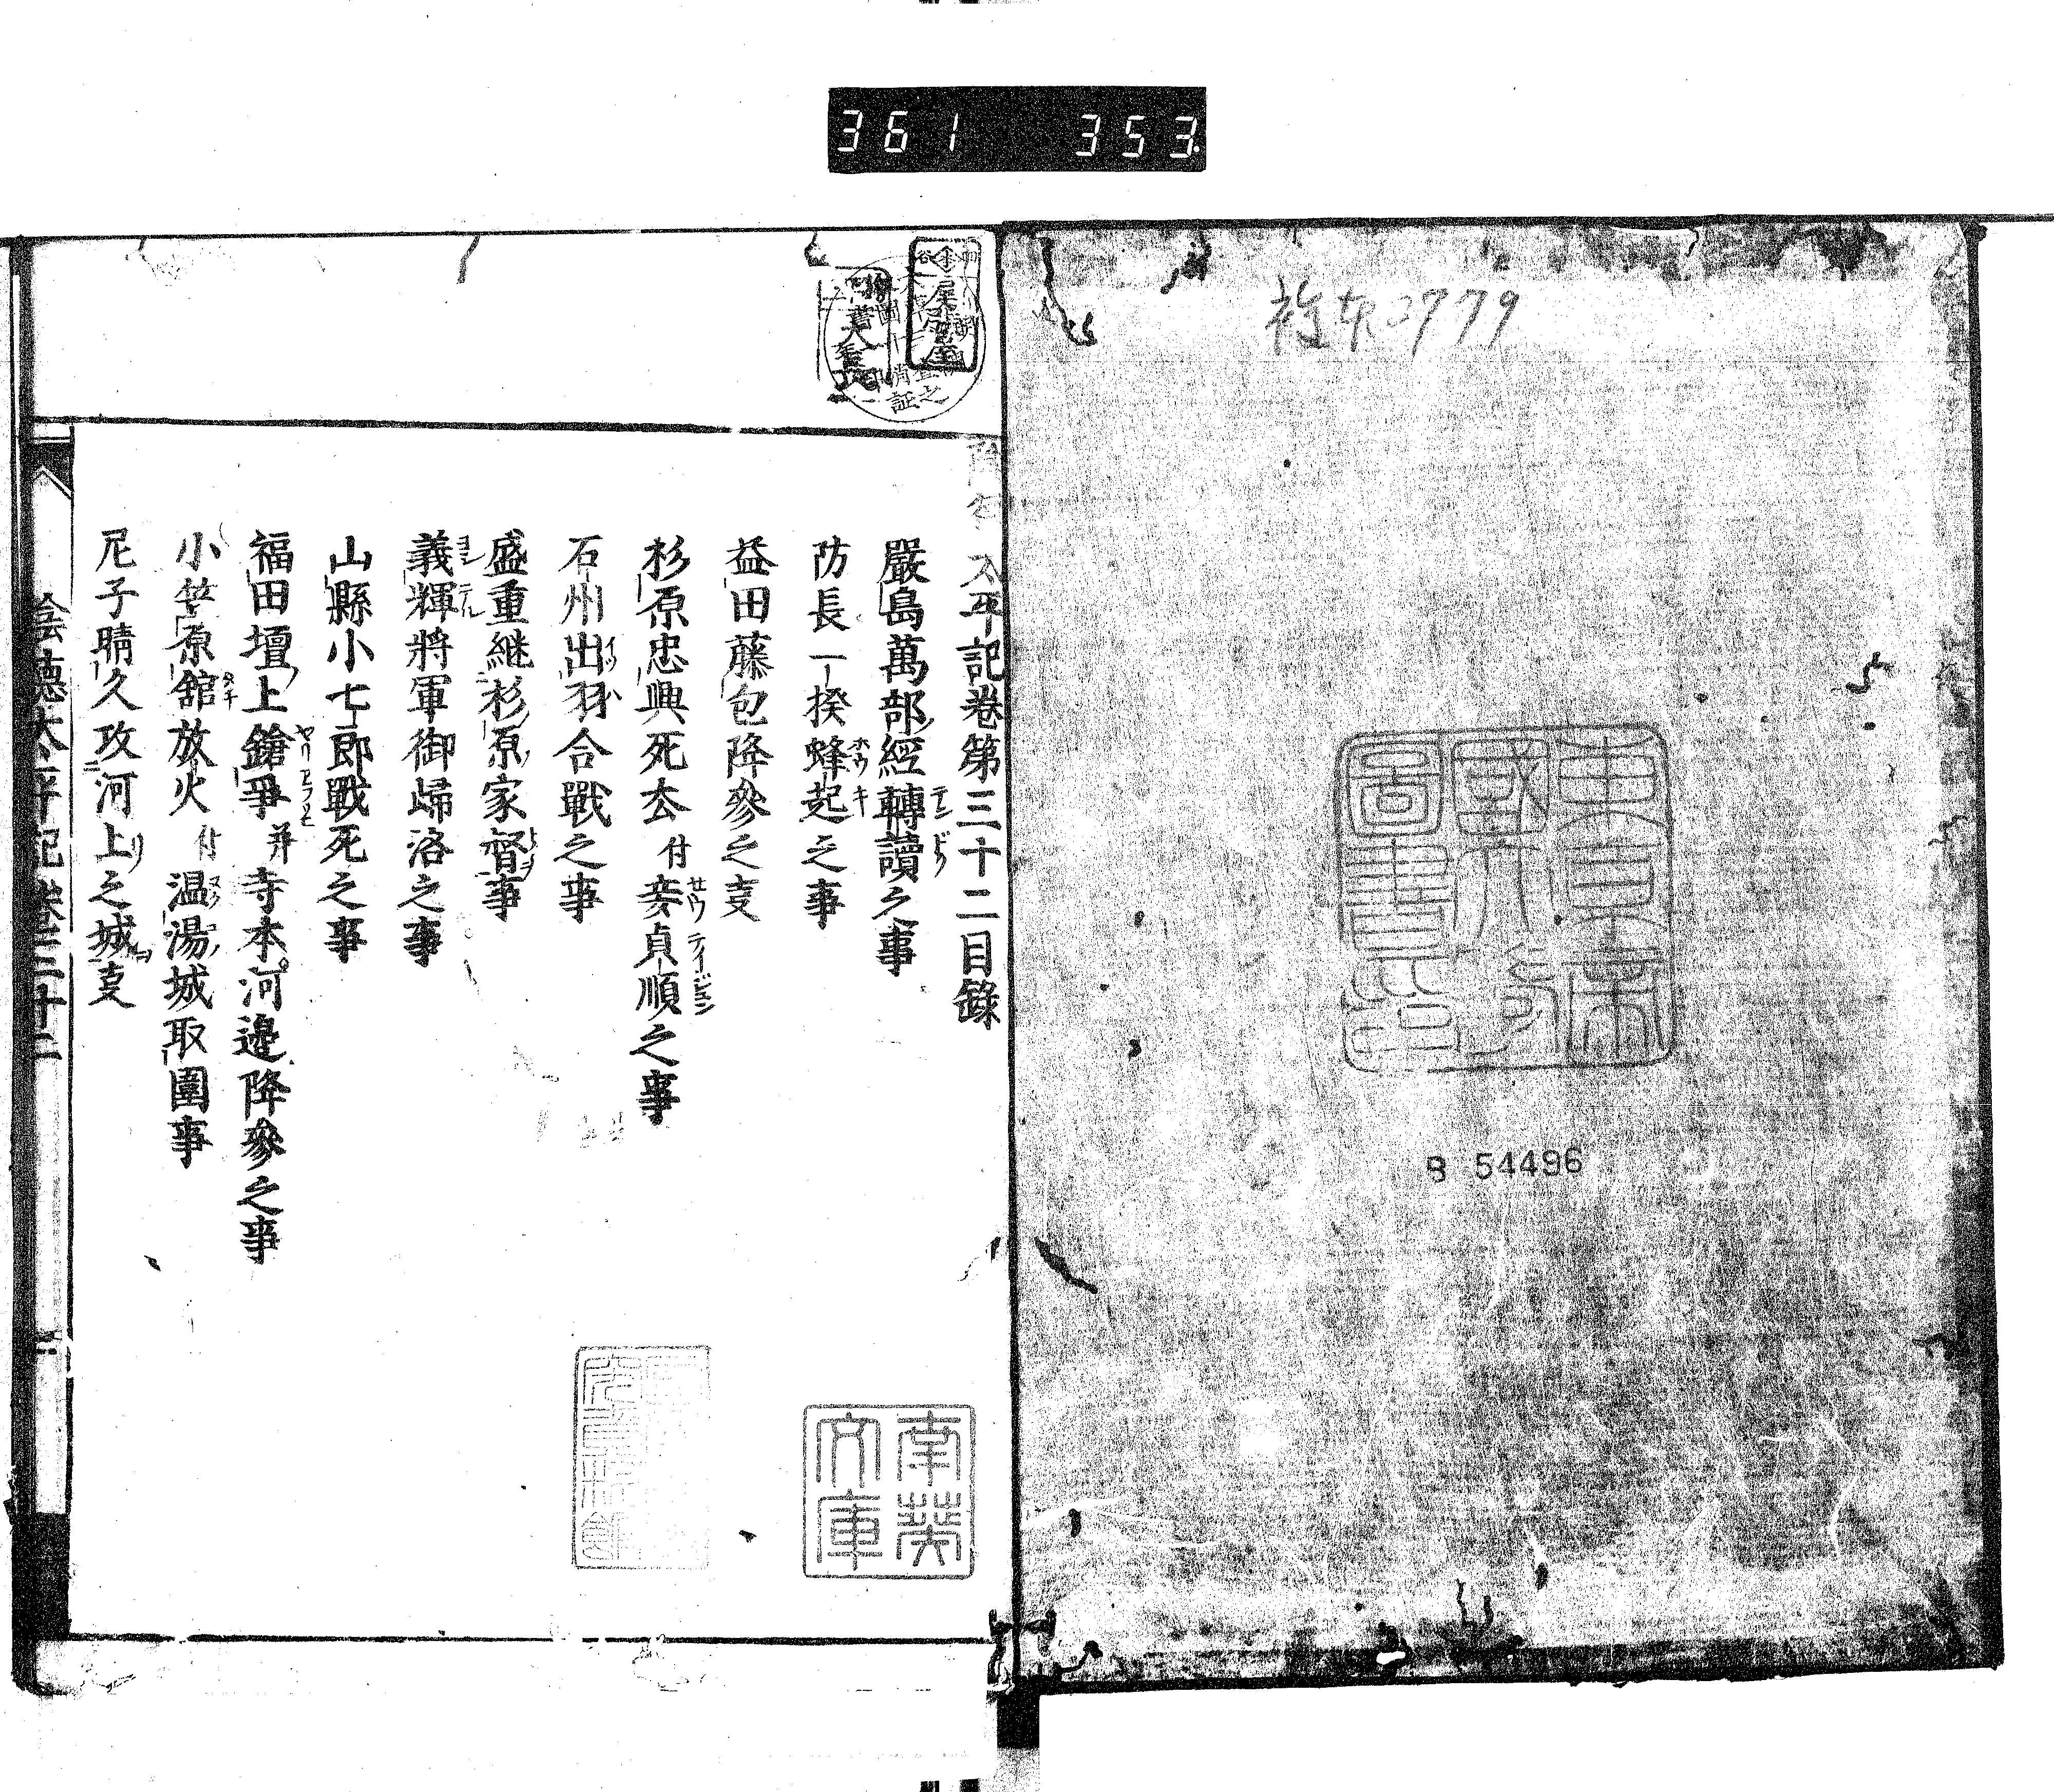 361 353
複本2779
東京帝國大學圖書印
B 54496
太平記卷第三十二目錄
嚴島萬部經轉讀之事
防長一揆蜂起之事
益田藤包降參之㕝
杉原忠興死去付妾貞順之事
石州出羽合戰之事
盛重継杉原家督事
義輝將軍御歸洛之事
山縣小七郎戰死之事
福田壇上鎗爭并寺本河邉降參之事
小笠原舘放火付温湯城取圍事
尼子晴久攻河上之城㕝
陰德太平記卷三十二
南葵文庫